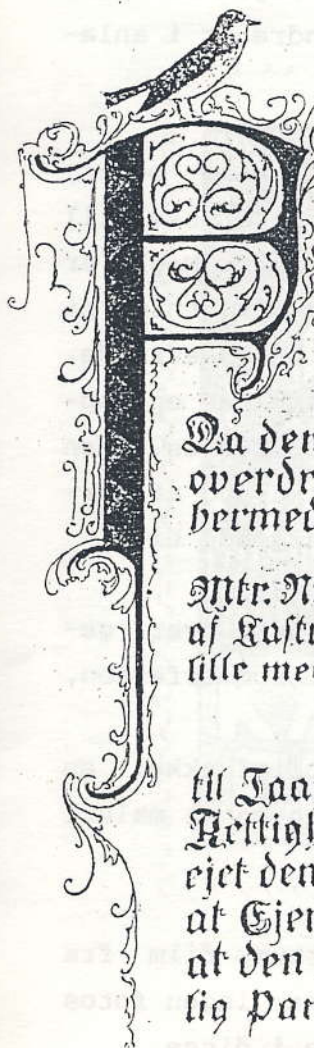 P
Da den
overdr
hermed
Mtr. N
af Kastr
lille med
til Taa
Rettigh
ejet den
at Ejer
at den
lig Pat